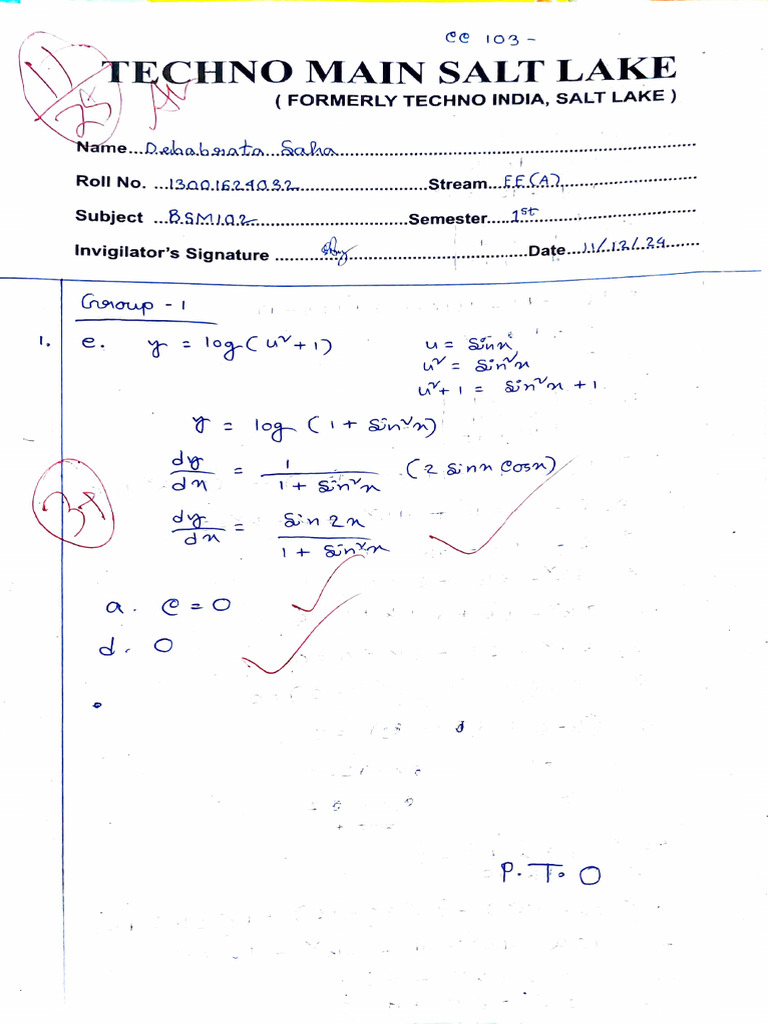 CC 103 -
11/25
TECHNO MAIN SALT LAKE
( FORMERLY TECHNO INDIA, SALT LAKE )
Name...Debabrata Saha
Roll No. ...13001624032...Stream...EE(A)
Subject ...BSM102...Semester....1st
Invigilator's Signature ...Date...11/12/24
Group - 1
1. e. y = log(u² + 1) u = sinx
u² = sin²x
u² + 1 = sin²x + 1
y = log (1 + sin²x)
dy/dx = 1/(1 + sin²x) . (2 sinx cosx)
dy/dx = sin 2x/(1 + sin²x)
a. c = 0
d. 0
P. T. O